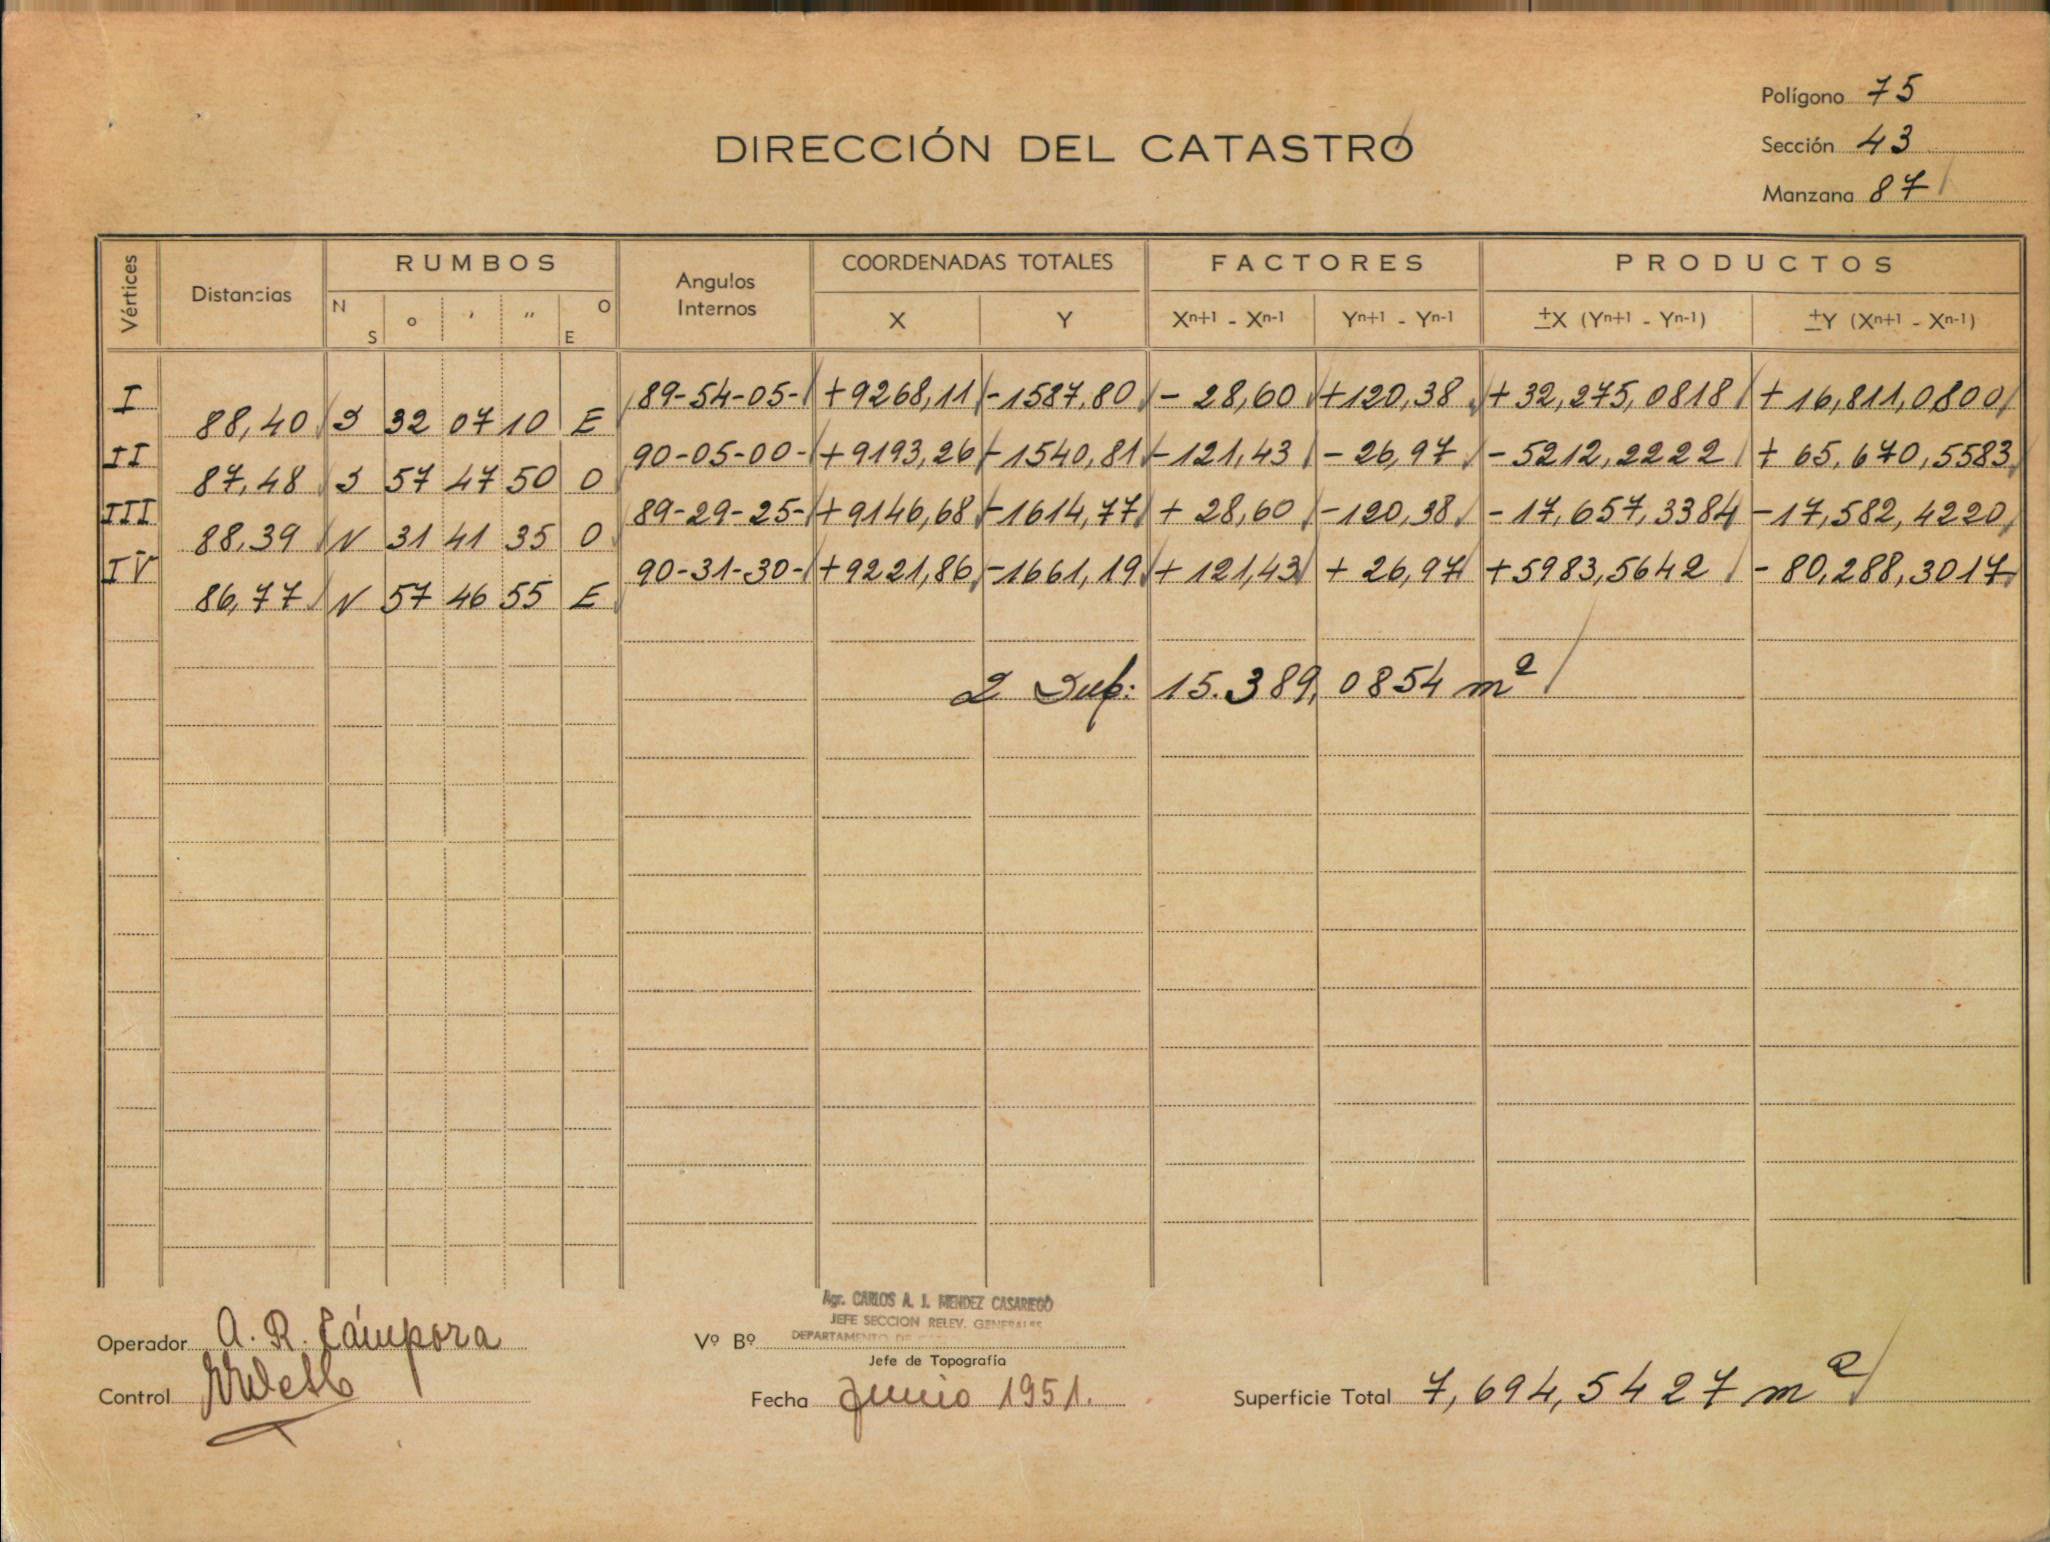 Polígono 75
DIRECCIÓN DEL CATASTRO
Sección 43
Manzana 87
Vértices Distancias RUMBOS Angulos Internos COORDENADAS TOTALES FACTORES PRODUCTOS
N S o ' " O E X Y Xn+1 - Xn-1 Yn+1 - Yn-1 ±X (Yn+1 - Yn-1) ±Y (Xn+1 - Xn-1)
I 89-54-05- +9268,11 -1587,80 - 28,60 +120,38 + 32,275,0818 + 16,811,0800
88,40 S 32 07 10 E
II 90-05-00- +9193,26 -1540,81 -121,43 - 26,97 - 5212,2222 + 65,670,5583
87,48 S 57 47 50 O
III 89-29-25- +9146,68 -1614,77 + 28,60 -120,38 - 17,657,3384 -17,582,4220
88,39 N 31 41 35 O
IV 90-31-30- +9221,86 -1661,19 + 121,43 + 26,97 +5983,5642 - 80,288,3017
86,77 N 57 46 55 E
2 Sup: 15.389,0854 m2
Agr. CARLOS A. J. MENDEZ CASARIEGO
JEFE SECCION RELEV. GENERALES
DEPARTAMENTO DE
Operador A. R. Cámpora
Vº Bº
Jefe de Topografía
Control
Fecha Junio 1951.
Superficie Total 7,694,5427 m2